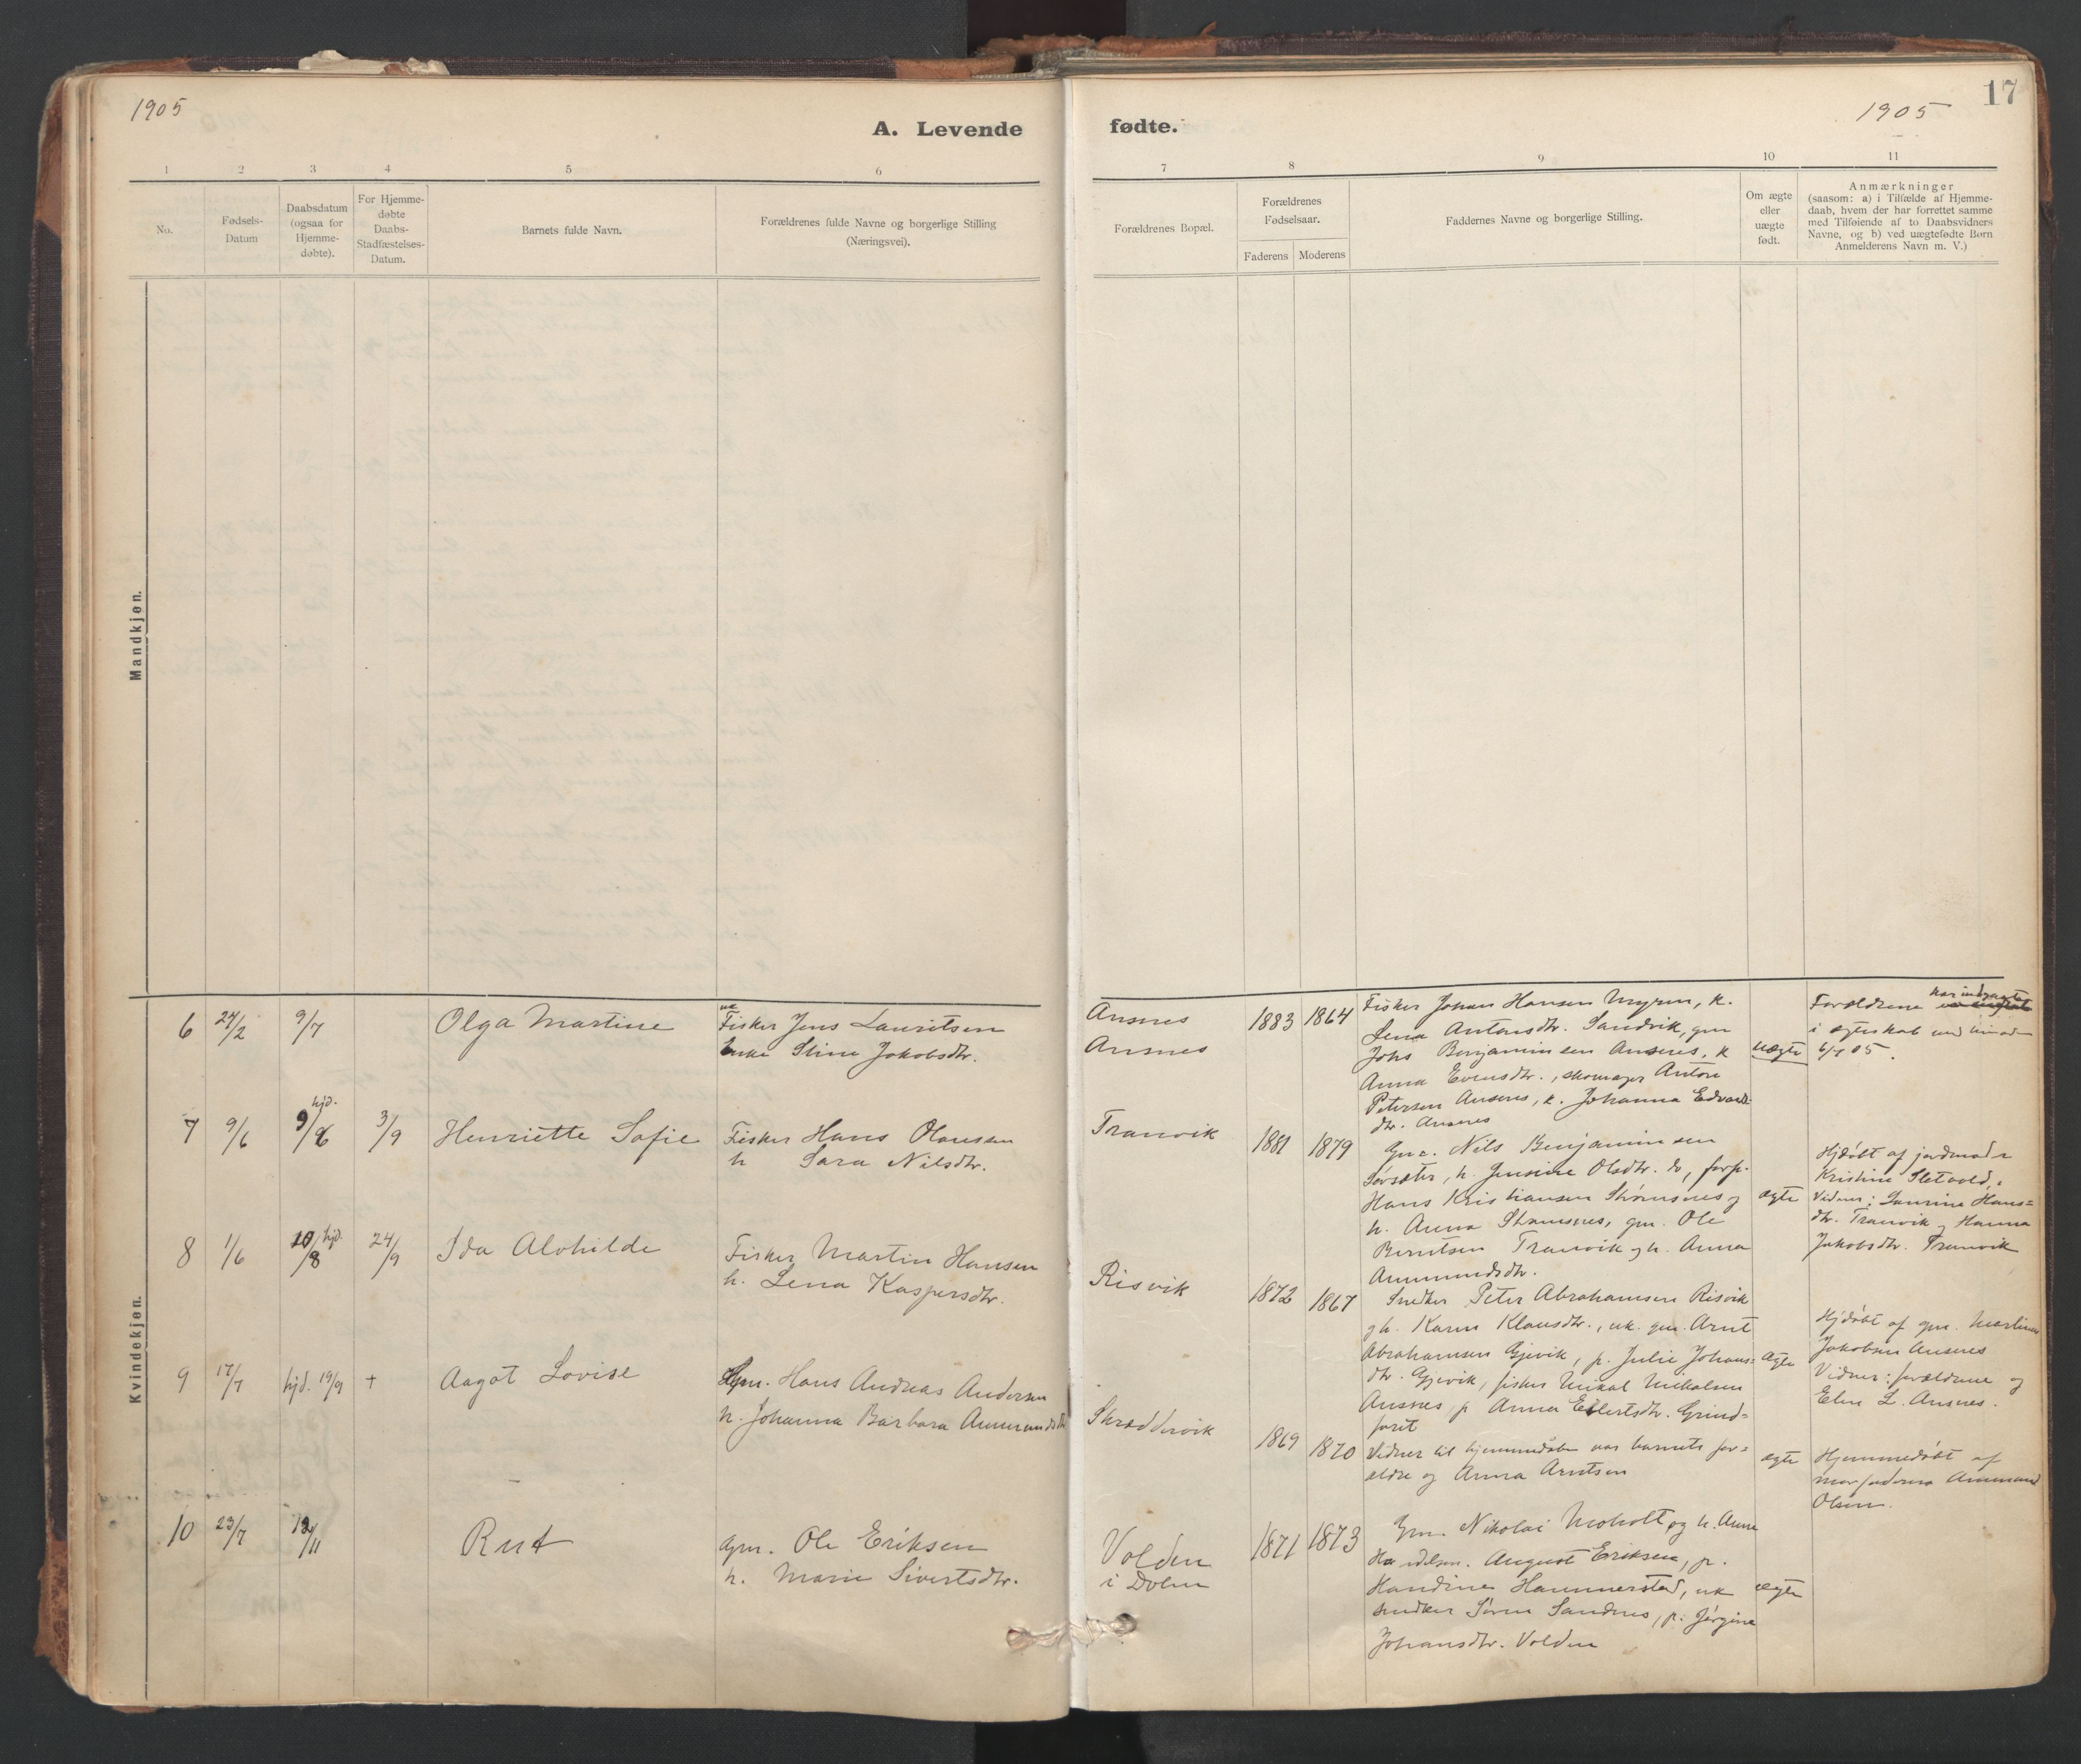 1905
A. Levende
1 2 3 4 5 6
No.
Fødsels-
Datum
Daabsdatum
(ogsaa for
Hjemme-
døbte).
For Hjemme-
døbte
Daabs-
Stadfæstelses-
Datum.
Barnets fulde Navn.
Forældrenes fulde Navne og borgerlige Stilling
(Næringsvei).
Mandkjøn.
Kvindekjøn.
6 24/2 9/7 Olga Martine
uk
Fisker Jens Lauritsen
Enke Stine Jakobsdtr.
hjd.
7 9/6 9/6 3/9 Henriette Sofie
Fisker Hans Olausen
h Sara Nilsdtr.
8 1/6 10/8 hjd. 24/9 Ida Alvhilde
Fisker Martin Hansen
h. Lena Kaspersdtr.
9 17/7 hjd. 19/9 + Aagot Lovise
Gm. Hans Andreas Andersen
h. Johanna Barbara Ammundsdtr
10 23/7 12/11 Rut
Gm. Ole Eriksen
h. Marie Sivertsdtr.
17
1905
fødte.
7 8 9 10 11
Forældrenes Bopæl.
Forældrenes
Fødselsaar.
Faderens Moderens
Faddernes Navne og borgerlige Stilling.
Om ægte
eller
uægte
født.
Anmærkninger
(saasom: a) i Tilfælde af Hjemme-
daab, hvem der har forrettet samme
med Tilføiende af to Daabsvidners
Navne, og b) ved uægtefødte Børn
Anmelderens Navn m. V.)
Ansnes
Ansnes
1883 1864
Fisker Johan Hansen Myren, k.
Lena Antonsdtr. Sandvik, gm
Johs Benjaminsen Ansnes, k
Anna Evensdtr., skomager Anton
Petersen Ansnes, k. Johanna Edvards
dtr. Ansnes
uægte
Forældrene har indgaaet
i ægteskab med hinanden
05.
Tranvik
1881 1879
Gm. Nils Benjaminsen
Sørsæter, h. Jensine Olsdtr. do, forp.
Hans Kristiansen Strømsnes og
h. Anna Strømsnes, gm. Ole
Berntsen Tranvik og h. Anna
Ammundsdtr.
ægte
Hjdøbt af jordmoder
Kristine Sletvold,
Vidner: Laurine Hans=
dtr. Tranvik og Hanna
Jakobsdtr. Tranvik
Risvik
1872 1867
Snedker Peter Abrahamsen Risvik
og h. Karen Klausdtr., uk. gm. Arnt
Abrahamsen Gjevik, p. Julie Johans=
dtr. Gjevik, fisker Mikal Mikalsen
Ansnes, p Anna Ellertsdtr. Grind=
foret
ægte
Hjdøbt af gm. Martinus
Jakobsen Ansnes
Vidner: forældrene og
Elen L. Ansnes.
Skreddervik
1869 1870
Vidner til hjemmedåben var barnets for=
ældre og Anna Arntsen
ægte
Hjemmedøbt af
morfaderen Ammund
Olsen.
Volden
i Dolm
1871 1873
Gm. Nikolai Moholt og h. Anna
Handelsm. August Eriksen, p.
Handine Hammerstad, uk
snedker Søren Sandnes, p. Jørgine
Johansdtr. Volden
ægte